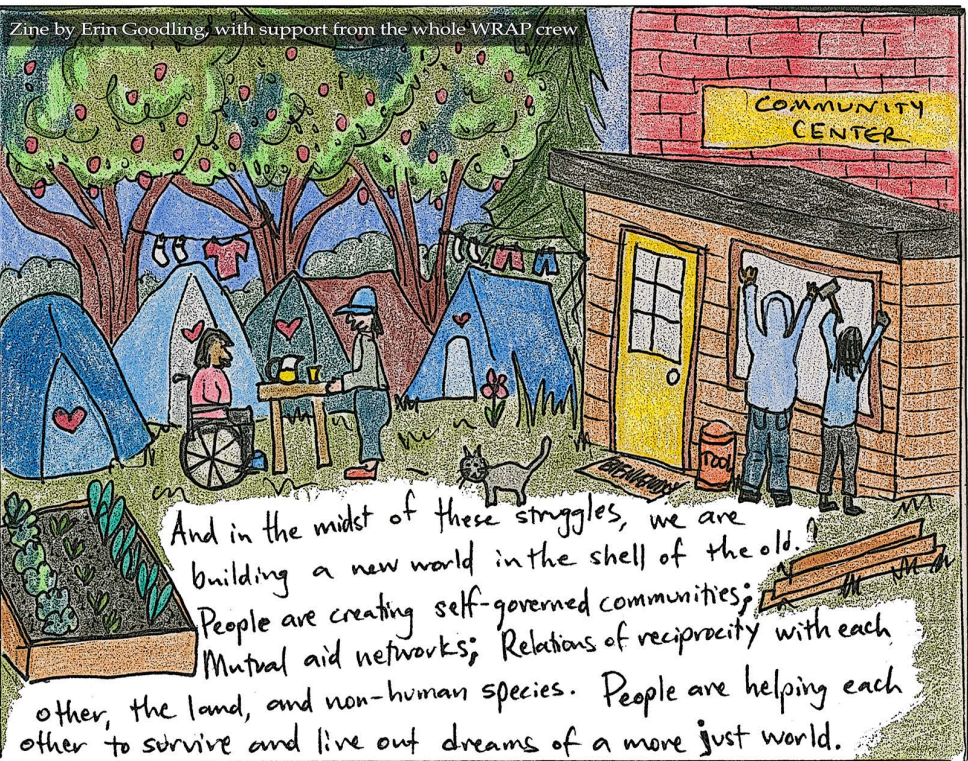 Zine by Erin Goodling, with support from the whole WRAP crew
COMMUNITY
CENTER
TOOL
BIENVENIDOS
And in the midst of these struggles, we are
building a new world in the shell of the old.
People are creating self-governed communities;
Mutual aid networks; Relations of reciprocity with each
other, the land, and non-human species. People are helping each
other to survive and live out dreams of a more just world.